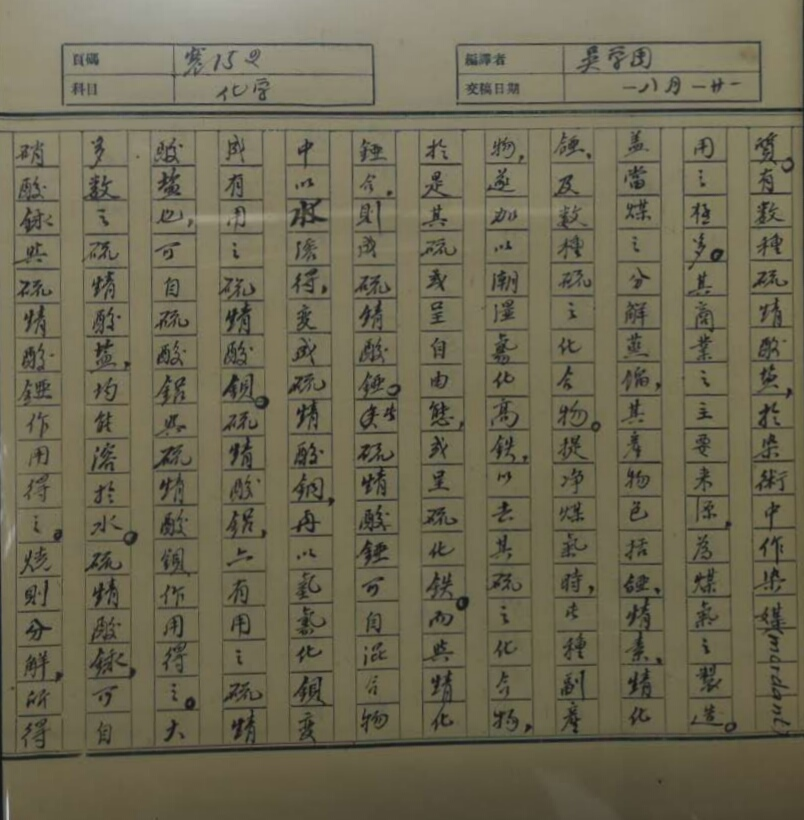 頁碼
科目 化学
編譯者 吳学周
交稿日期 一八月廿一
質。有數種硫腈酸盐,於染術中作染媒(mardant)
用之極多。其商業之主要来源,為煤氣之製造。
盖當煤之分解蒸餾,其產物包括錏,腈素,腈化
錏,及數種硫之化合物。提净煤氣時,此種副產
物,遂加以潮濕氧化高鉄,以去其硫之化合物,
於是其硫或呈自由態,或呈硫化鉄。而與腈化
錏合,則成硫腈酸錏。此硫腈酸錏可自混合物
中以水溶得,変成硫腈酸銅,再以氫氧化鋇変
成有用之硫腈酸鋇。硫腈酸鋁,亦有用之硫腈
酸盐也,可自硫酸鋁與硫腈酸鋇作用得之。大
多數之硫腈酸盐,均能溶於水。硫腈酸銾,可自
硝酸銾與硫腈酸錏作用得之。燒則分解,所得